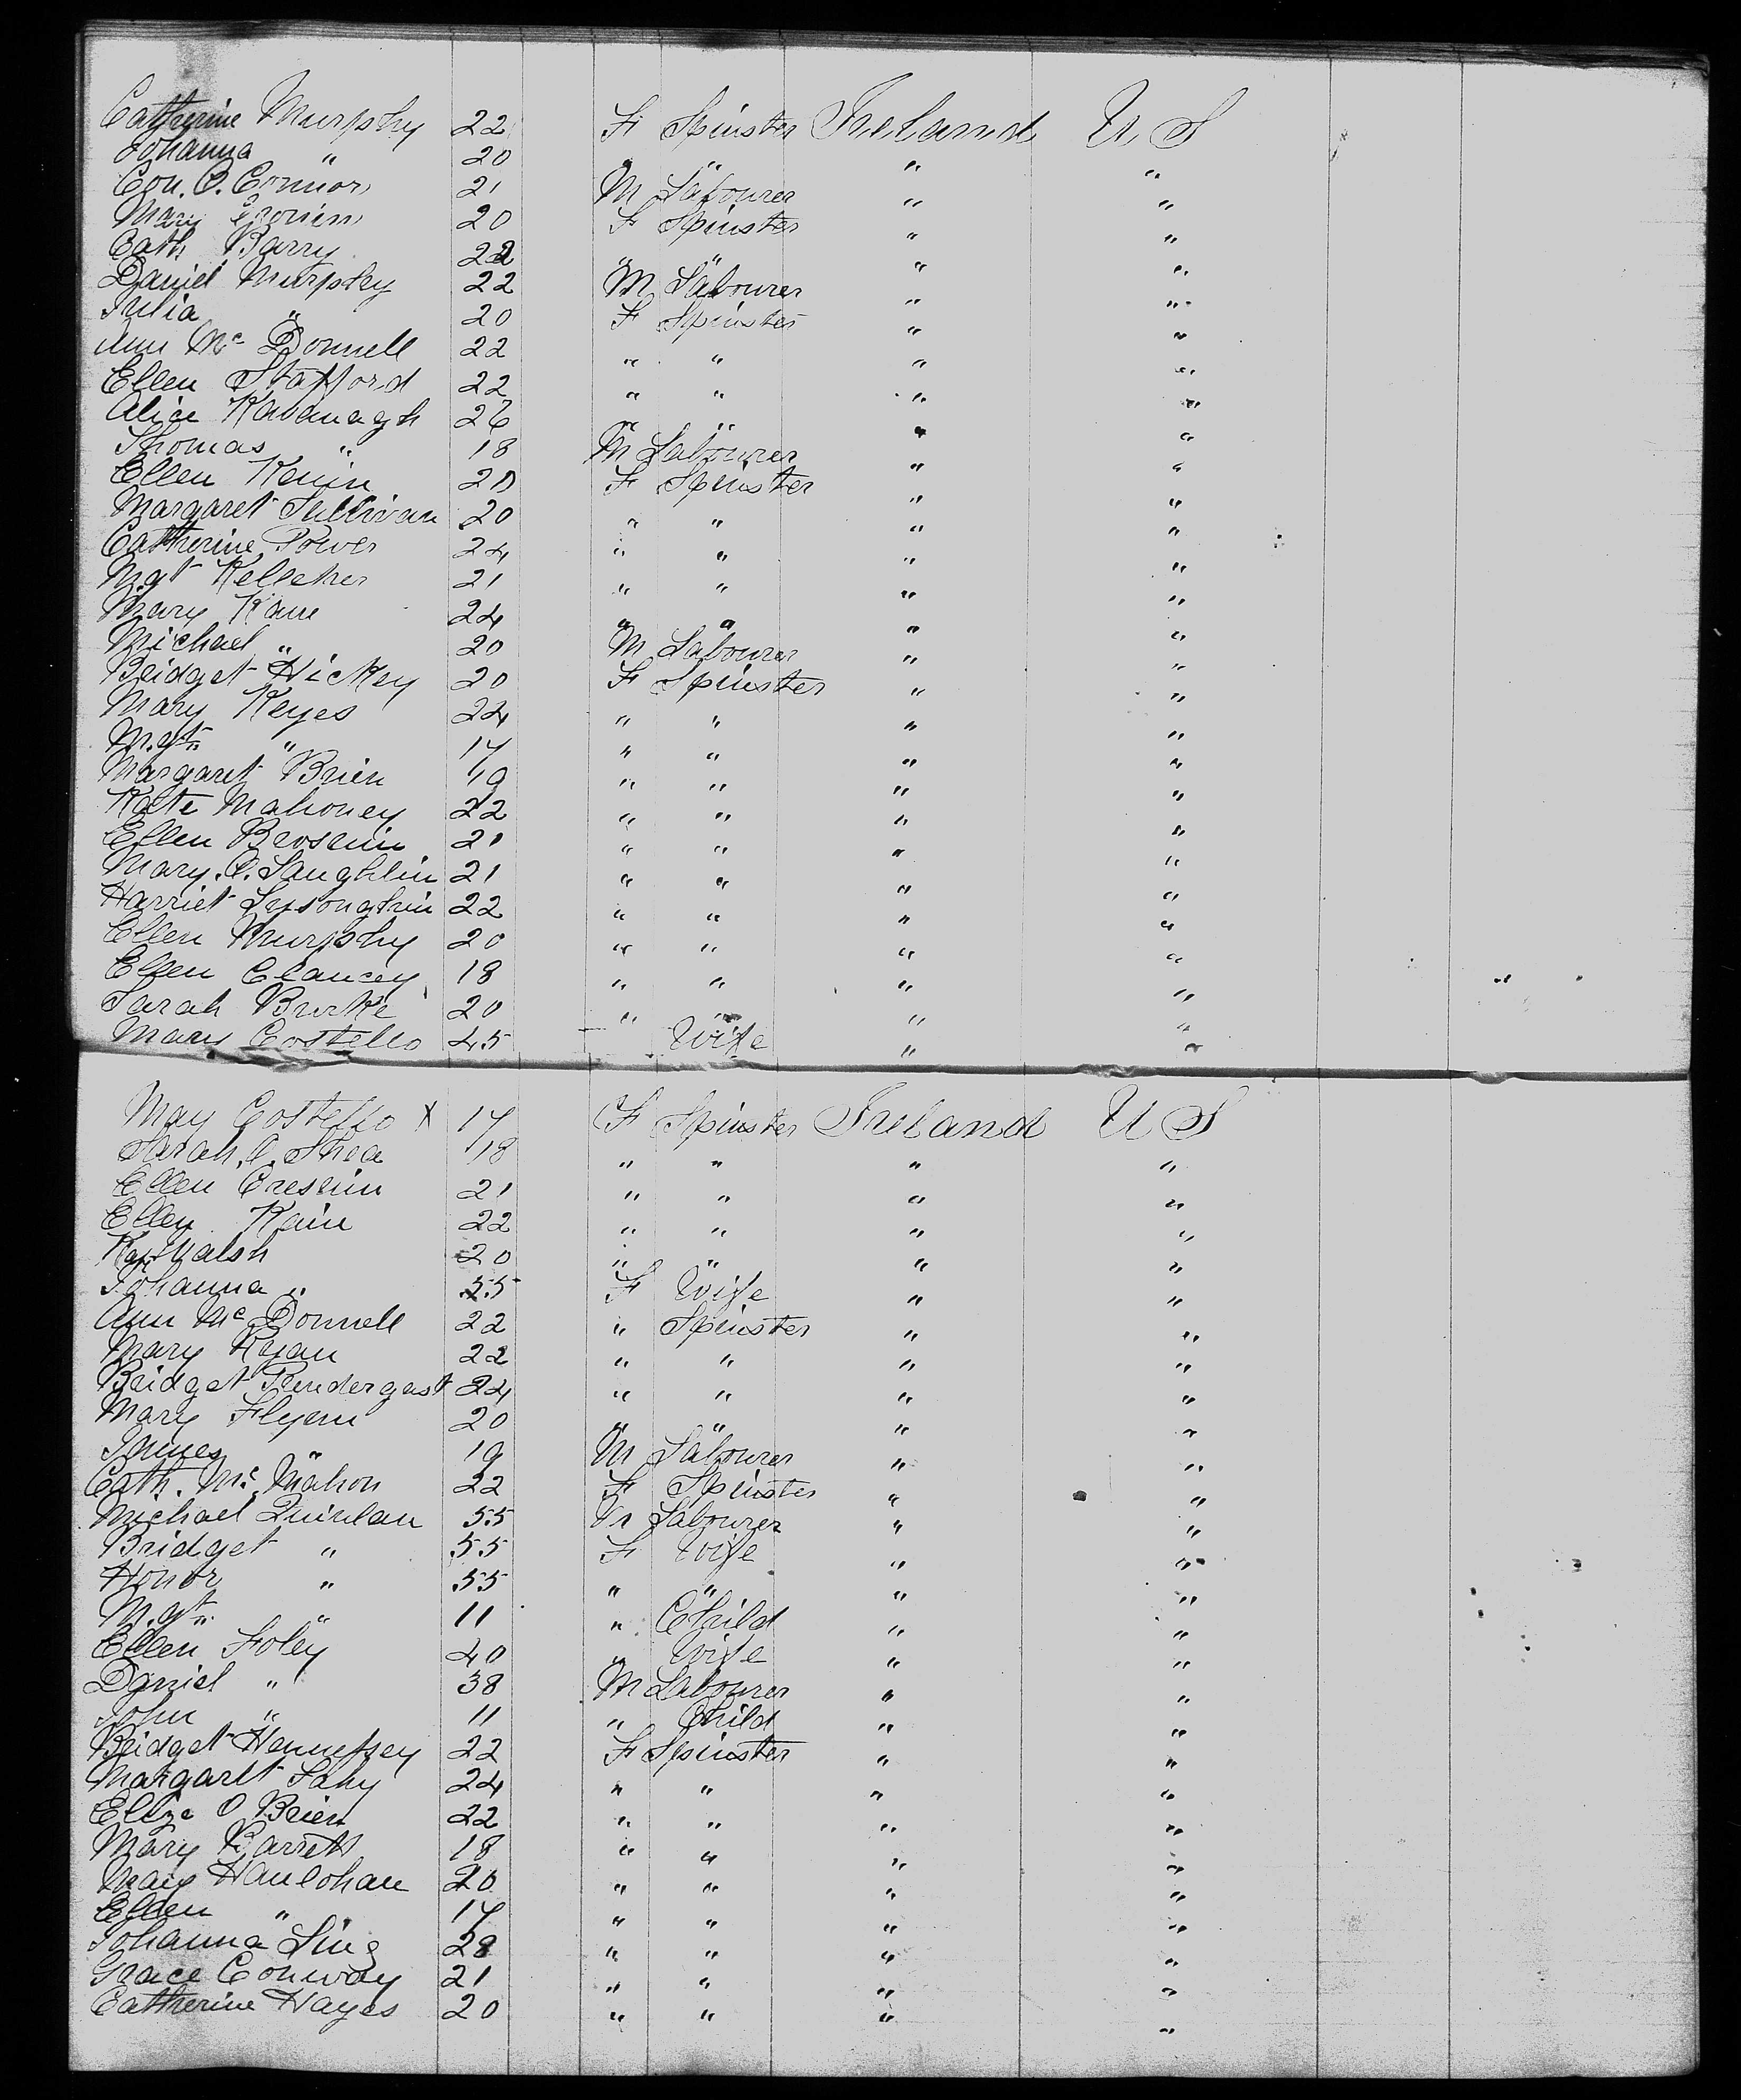 Catherine Murphy 22 F Spinster Ireland U S
Johanna " 20 " " " "
Con. O. Connor 21 M Labourer " "
Mary Cronin 20 F Spinster " "
Cath Barry 22 " " " "
Daniel Murphy 22 M Labourer " "
Julia " 20 F Spinster " "
Ann Mc Donnell 22 " " " "
Ellen Stafford 22 " " " "
Alice Kavanagh 26 " " " "
Thomas " 18 M Labourer " "
Ellen 20 F Spinster " "
Margaret Sullivan 20 " " " "
Catherine Power 24 " " " "
Mgt Kelleher 21 " " " "
Mary Kane 24 " " " "
Michael " 20 M Labourer " "
Bridget Hickey 20 F Spinster " "
Mary Keyes 24 " " " "
Mgt " 17 " " " "
Margaret Brien 19 " " " "
Kate Mahoney 22 " " " "
Ellen Brosnin 21 " " " "
Mary. O. Laughlin 21 " " " "
Harriet 22 " " " "
Ellen Murphy 20 " " " "
Ellen Clancey 18 " " " "
Sarah Burke 20 " " " "
Mary Costello 45 Wife " "
May Costello X 17 F Spinster Ireland U S
Sarah. O. Shea 18 " " " "
Ellen 21 " " " "
Ellen Kain 22 " " " "
Kate Walsh 20 " " " "
Johanna " 55 F Wife " "
Ann Mc Donnell 22 " Spinster " "
Mary Ryan 22 " " " "
Bridget Pendergast 24 " " " "
Mary Flynn 20 " " " "
" 19 M Labourer " "
Cath. Mc Mahon 22 F Spinster " "
Michael Quinlan 55 M Labourer " "
Bridget " 55 F Wife " "
Honor " 55 " " " "
Mgt " 11 " Child " "
Ellen Foley 40 " Wife " "
Daniel " 38 M Labourer " "
John " 11 " Child " "
Bridget Hennessey 22 F Spinster " "
Margaret Lahy 24 " " " "
Eliza O Brien 22 " " " "
Mary Barrett 18 " " " "
Mary Hanlohan 20 " " " "
Ellen " 17 " " " "
Johanna 28 " " " "
Grace Conway 21 " " " "
Catherine Hayes 20 " " " "